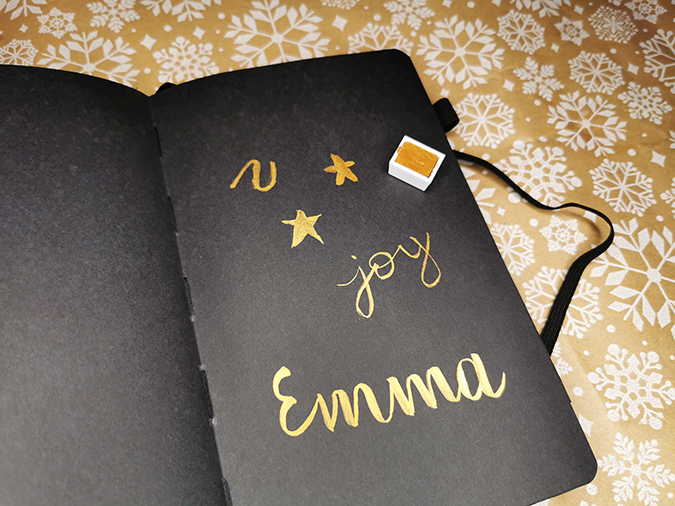 joy
Emma